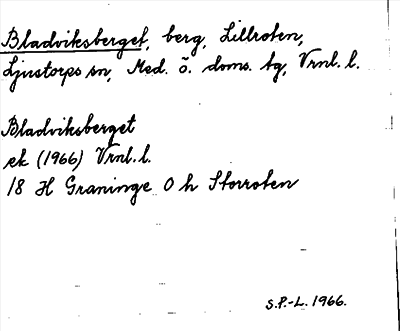 Bladviksberget, berg, Lillroten,
Ljustorps sn, Med. ö. doms. tg, Vrnl. l.
Bladviksberget
ek (1966) Vrnl. l.
18 H Graninge 0 h Storroten
S.P.-L. 1966.